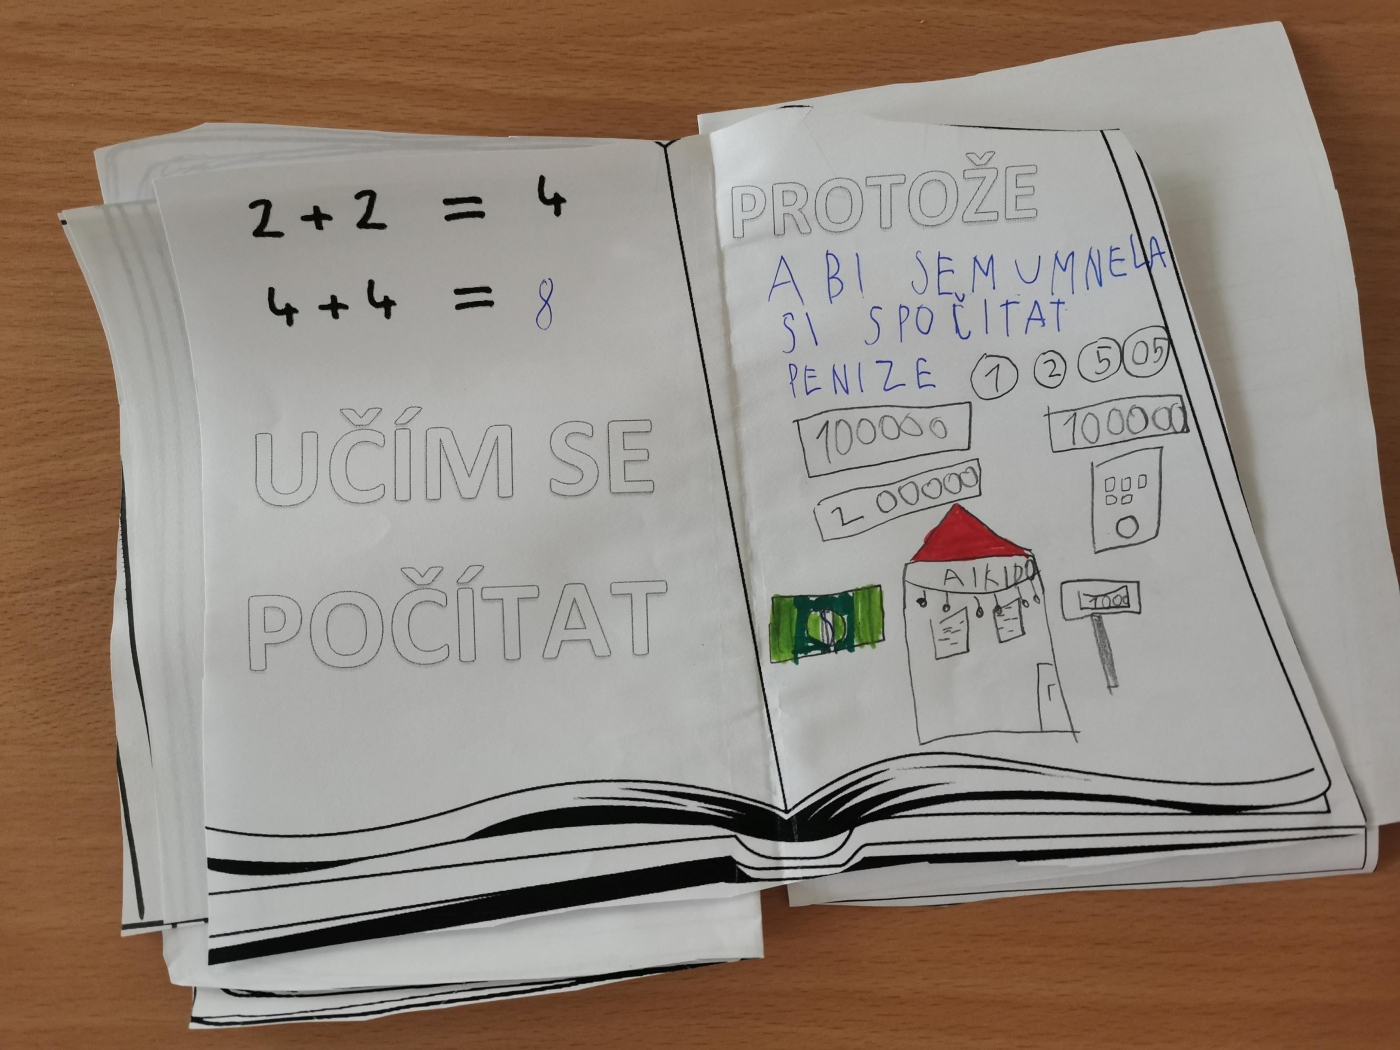 2 + 2 = 4
4 + 4 = 8
UČÍM SE
POČÍTAT
PROTOŽE
ABI SEM UMNELA
SI SPOČITAT
PENIZE 1 2 5 05
100000 100000
200000
AIKIDO
1000